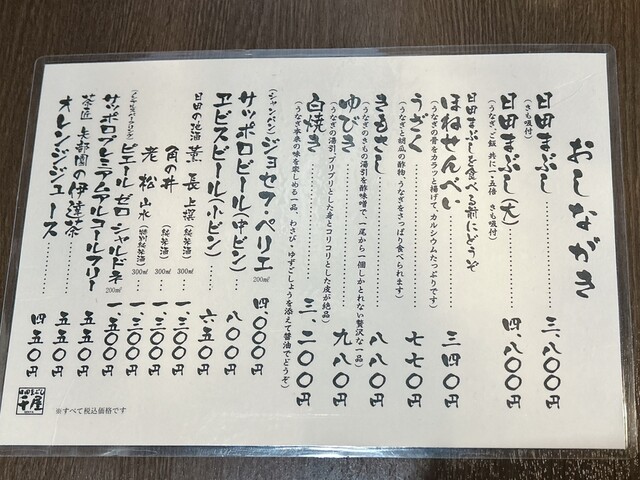 おしながき
日田まぶし……三、八〇〇円
(きも吸付)
日田まぶし(大)……四、八〇〇円
(うなぎ、ご飯 共に一・五倍 きも吸付)
日田まぶしを食べる前にどうぞ
ほねせんべい……三四〇円
(うなぎの骨をカラッと揚げて、カルシウムたっぷりです)
うざく……七七〇円
(うなぎと胡瓜の酢物、うなぎをさっぱり食べられます)
きもさし……八八〇円
(うなぎのきもの湯引を酢味噌で、一尾から一個しかとれない贅沢な一品)
ゆびき……九八〇円
(うなぎの湯引、プリプリとした身とコリコリとした皮が絶品)
白焼き……三、二〇〇円
(うなぎ本来の味を楽しめる一品、わさび・ゆずごしょうを添えて醤油でどうぞ)
(シャンパン)ジョセフ・ペリエ 200㎖ 四、〇〇〇円
サッポロビール(中ビン)……八〇〇円
ヱビスビール(小ビン)……六五〇円
日田の地酒 薫長 上撰(純米酒) 300㎖ 一、三〇〇円
角の井(純米酒) 300㎖ 一、三〇〇円
老松 山水(特別純米酒) 300㎖ 一、三〇〇円
(ノンアルスパークリング)
ピエール ゼロ シャルドネ 200㎖ 一、五〇〇円
サッポロプレミアムアルコールフリー……五五〇円
茶匠 矢部園の伊達茶……五五〇円
オレンジジュース……四五〇円
日田まぶし
千屋
※すべて税込価格です